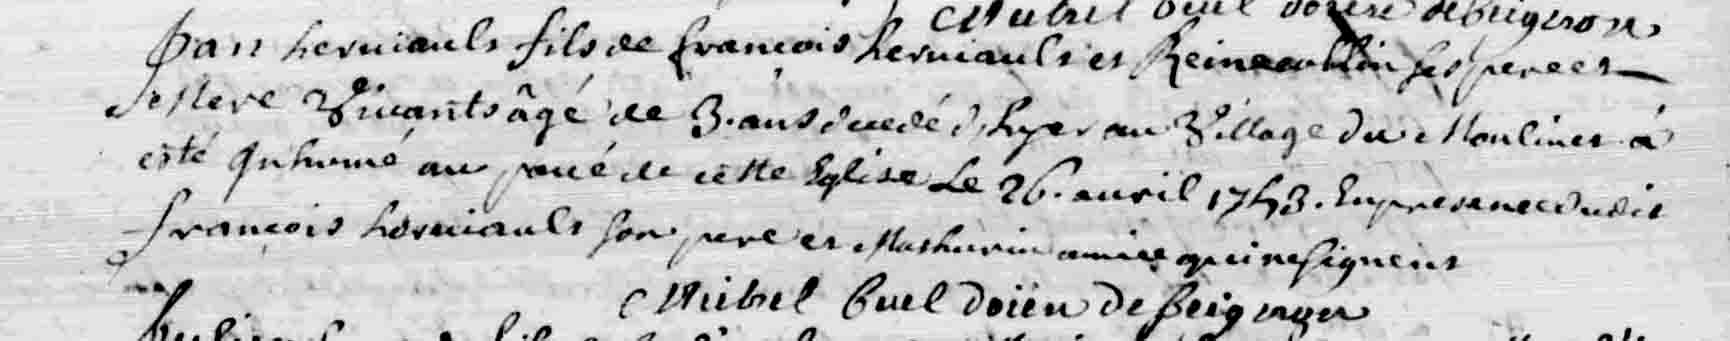 Michel buel doien de beignon
Jan herviault fils de françois herviault et Reine ses pere et
Mere Vivants âgé de 3. ans decedé d'hyer au Village du Moulinet à
esté Inhumé au pavé de cette Eglise Le 26. avril 1743. En presence dudit
françois herviault son pere et Mathurin amice qui ne signent
Michel buel doien de beignon
fils